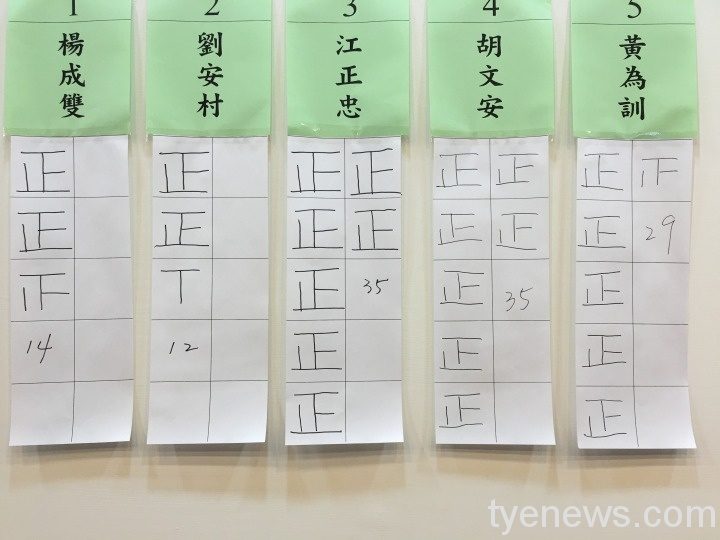 1
楊成雙
正
正
14
2
劉安村
正
正
丅
12
3
江正忠
正 正
正 正
正 35
正
正
4
胡文安
正 正
正 正
正 35
正
正
5
黃為訓
正
正 29
正
正
正
tyenews.com